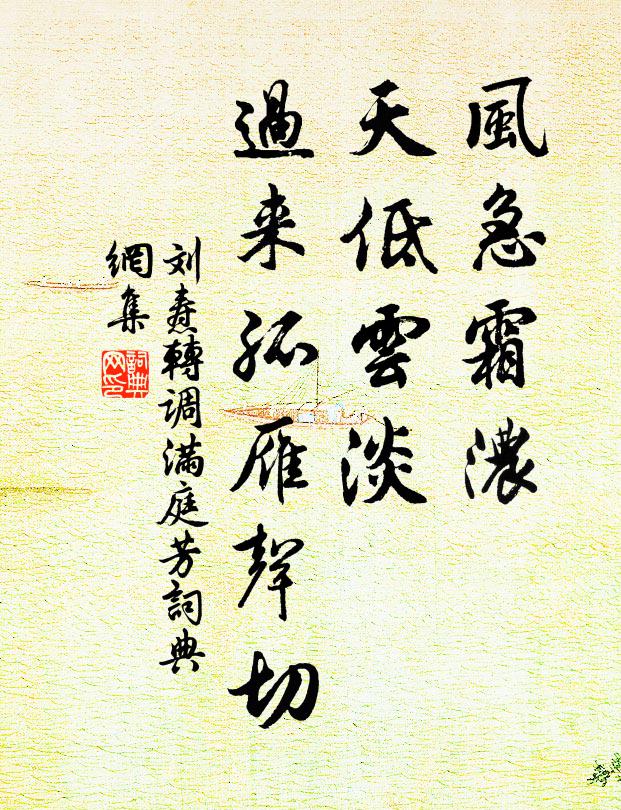 風急霜濃
天低雲淡
過来孤雁聲切
刘焘轉调滿庭芳詞典
網集
詞典
网印